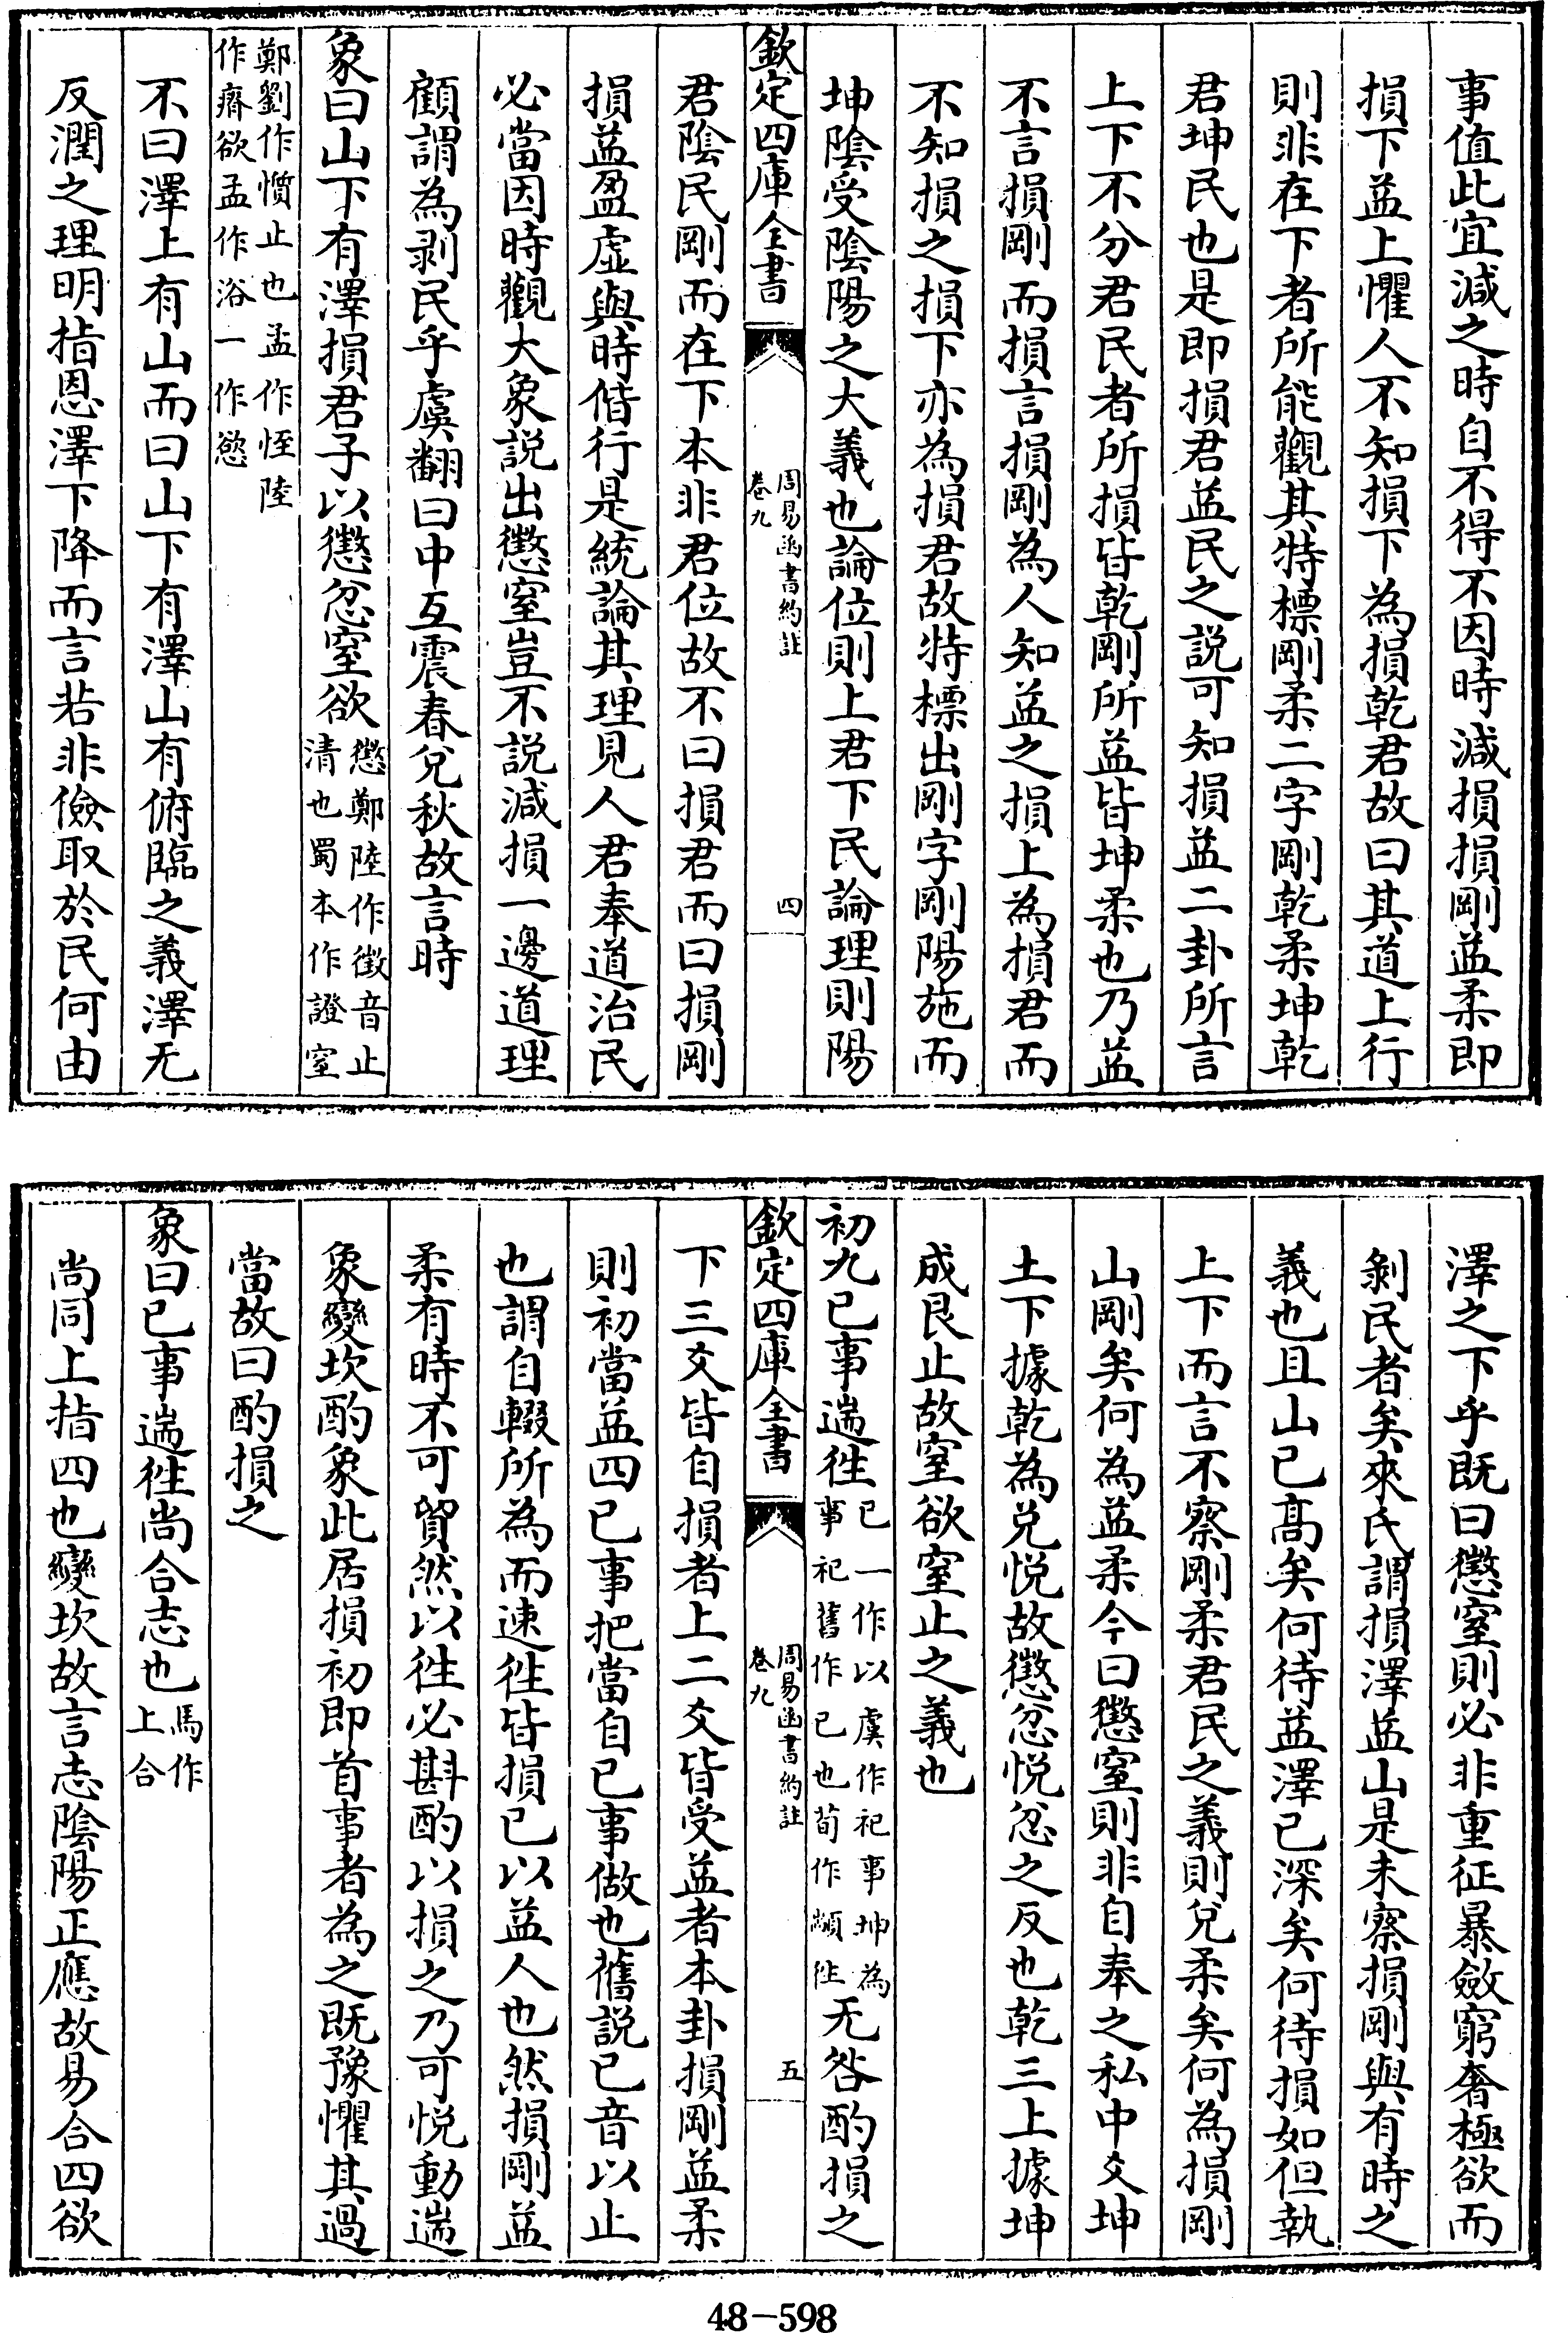 事值此宜減之時自不得不因時減損損剛益柔即
損下益上懼人不知損下為損乾君故曰其道上行
則非在下者所能觀其特標剛柔二字剛乾柔坤乾
君坤民也是即損君益民之說可知損益二卦所言
上下不分君民者所損皆乾剛所益皆坤柔也乃益
不言損剛而損言損剛為人知益之損上為損君而
不知損之損下亦為損君故特標出剛字剛陽施而
坤陰受陰陽之大義也論位則上君下民論理則陽
欽定四庫全書
周易函書約註
卷九
四
君陰民剛而在下本非君位故不曰損君而曰損剛
損益盈虛與時偕行是統論其理見人君奉道治民
必當因時觀大象說出懲窒豈不說減損一邊道理
顧謂為剥民乎虞翻曰中互震春兌秋故言時
象曰山下有澤損君子以懲忿窒欲
懲鄭陸作徵音止
清也蜀本作證窒
鄭劉作懫止也孟作恎陸
作㾤欲孟作浴一作慾
不曰澤上有山而曰山下有澤山有俯臨之義澤无
反潤之理明指恩澤下降而言若非儉取於民何由
澤之下乎既曰懲窒則必非重征暴斂窮奢極欲而
剝民者矣來氏謂損澤益山是未察損剛與有時之
義也且山已髙矣何待益澤已深矣何待損如但執
上下而言不察剛柔君民之義則兌柔矣何為損剛
山剛矣何為益柔今曰懲窒則非自奉之私中爻坤
土下據乾為兌悅故懲忿悅忿之反也乾三上據坤
成艮止故窒欲窒止之義也
初九已事遄徃
已一作以虞作祀事坤為
事祀舊作已也荀作顓徃
无咎酌損之
欽定四庫全書
周易函書約註
卷九
五
下三爻皆自損者上二爻皆受益者本卦損剛益柔
則初當益四已事把當自已事做也舊說已音以止
也謂自輟所為而速徃皆損已以益人也然損剛益
柔有時不可貿然以徃必斟酌以損之乃可悅動遄
象變坎酌象此居損初即首事者為之既豫懼其過
當故曰酌損之
象曰已事遄徃尚合志也
馬作
上合
尚同上指四也變坎故言志陰陽正應故易合四欲
48-598